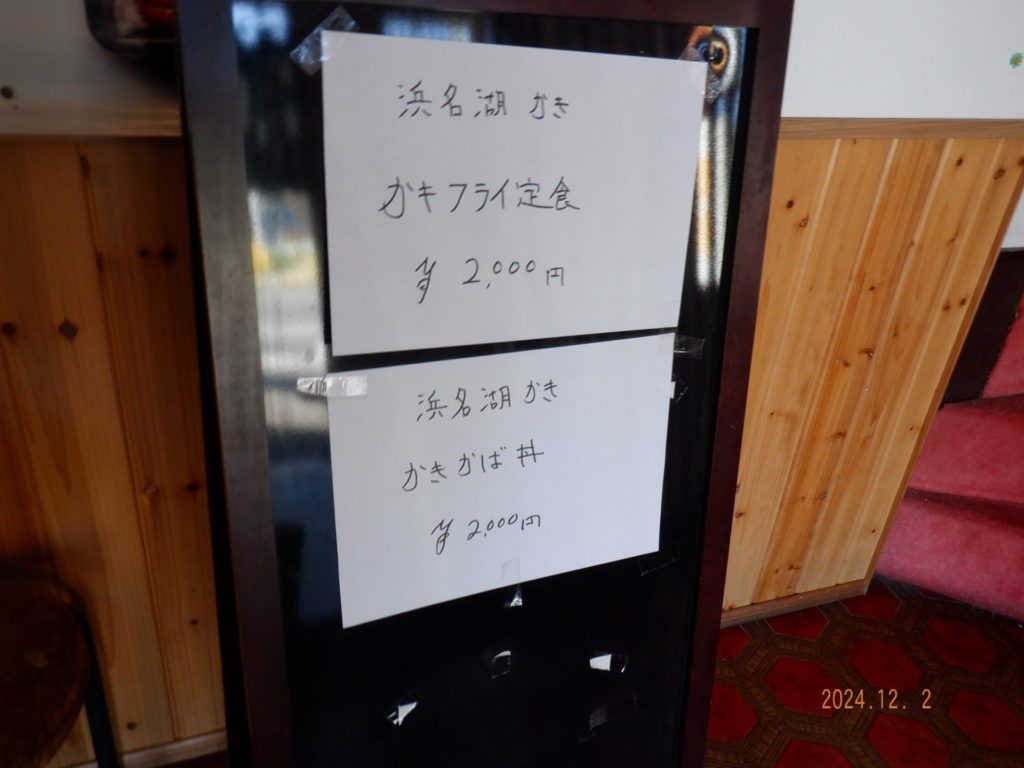 浜名湖 かき
カキフライ定食
¥ 2,000円
浜名湖かき
かきかば丼
¥ 2,000円
2024.12. 2